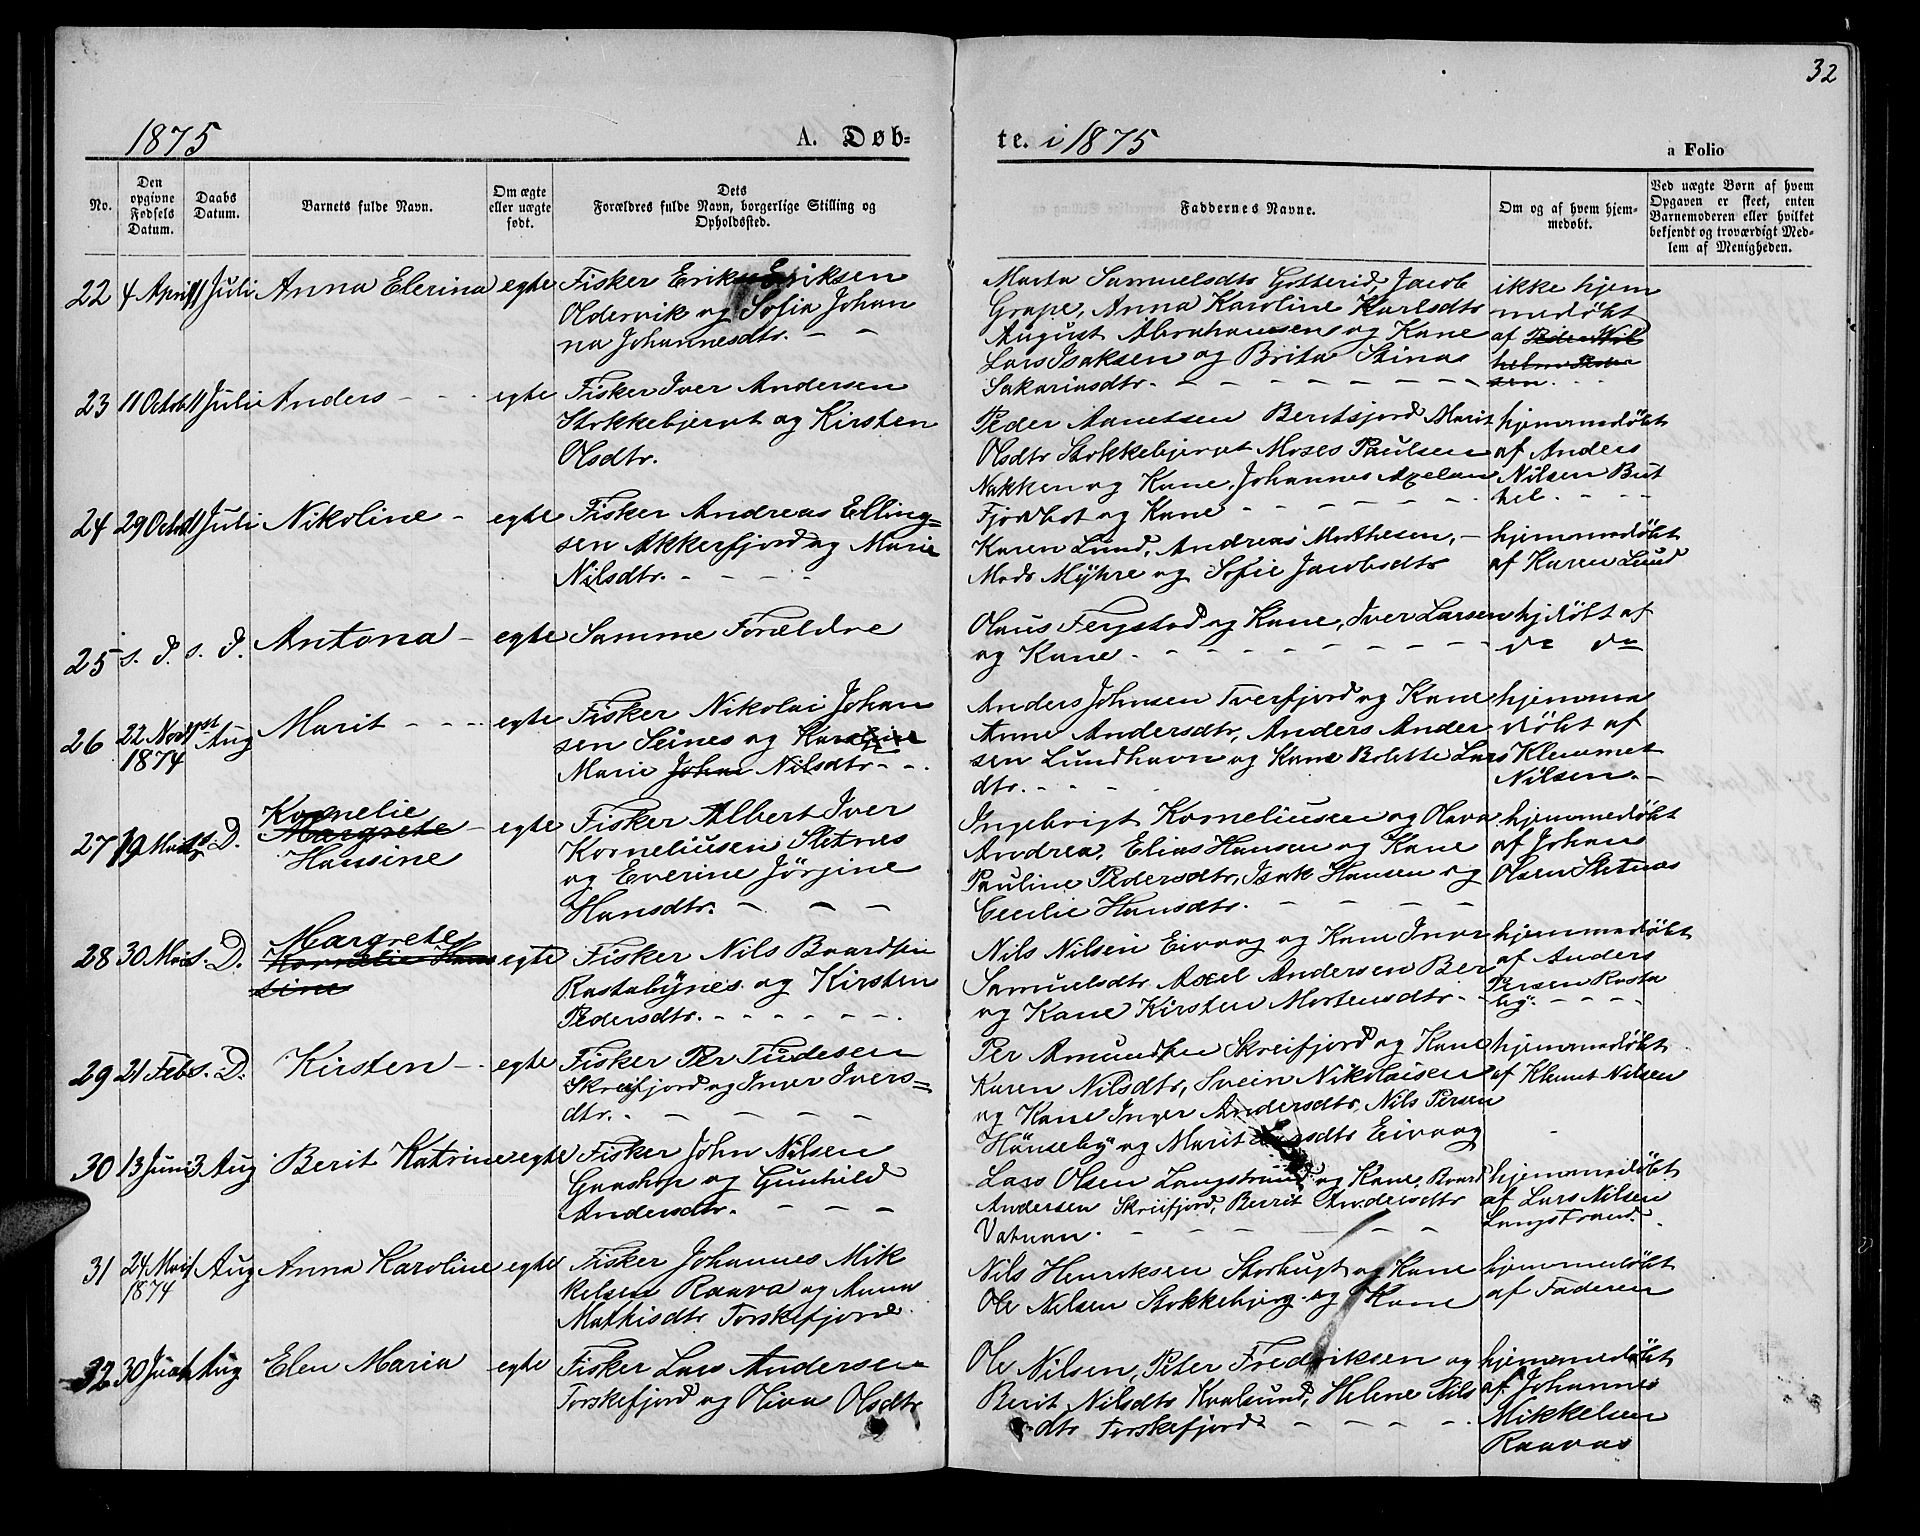 32
1875 A. Døb-
te. i 1875 a Folio
No.
Den opgivne Fødsels Datum.
Daabs Datum.
Barnets fulde Navn.
Om ægte eller uægte født.
Dets Forældres fulde Navn, borgerlige Stilling og Opholdssted.
Faddernes Navne.
Om og af hvem hjem-
medøbt.
Ved uægte Børn af hvem
Opgaven er skeet, enten
Barnemoderen eller hvilket
bekjendt og troværdigt Med-
lem af Menigheden.
22 4 April 11 Juli Anna Elerina egte Fisker Erik Eriksen
Oldervik og Sofia Johan
na Johannesdtr. - -
Marta Samuelsdtr Gotterid, Jacob
Grape, Anna Karoline Karlsdtr
August Abrahamsen og Kane
Lars Isaksen og Brita Stina
Sakariasdtr. - - - -
ikke hjem
medøbt
af Peder Wil
helm
sen.
23 11 Octob 11 Juli Anders - - - egte Fisker Iver Andersen
Stokkebjervt og Kirsten
Olsdtr.
Peder Anetsen Beritsjord Marit
Olsdtr Stokkebjervt Moses Paulsen
Nakken og Kane, Johannes
Fjordbot og Kane - - - -
hjemmedøbt
af Anders
Nilsen But
hel. - - -
24 29 Octob 11 Juli Nikoline - egte Fisker Andreas Elling-
sen Akkerfjord og Marie
Nilsdtr. - - - -
Karen Lund, Andreas Mathesen, -
Mads Myhre og Sofie Jacobsdtr
hjemmedøbt
af Karen Lund
25 s. d. s. d. Antona - egte Samme Forældre
Olaus Fegstad og Kane, Iver Larsen
og Kane - - - -
hjdøbt af
do do
26 22 Nov 1st Aug Marit - - - egte Fisker Nikolai Johan
1874
sen Seines og Karoline
Marie Johan Nilsdtr - -
Anders Johnsen Tverfjord og Kane
Anne Andersdtr, Anders Ander
sen Lundhavn og Kane Bolette Lars
dtr. - - - -
hjemme
døbt af
Klemmet
Nilsen. -
27 19 Marts s. D. Kornelie
Margrete - egte Fisker Albert Iver
Hansine
Korneliusen Sletnes
og Everine Jørgine
Hansdtr. - - -
Ingebrigt Korneliusen og Olava
Andrea, Elias Hansen og Kane
Pauline Pedersdtr, Isak Hansen og
Cecilie Hansdtr. - - - -
hjemmedøbt
af Johan
Olsen Sletnes
28 30 Mai s. D. Margrete
Kornelie Han
sine
egte Fisker Nils Baardsen
Rastabynes og Kirsten
Pedersdtr. - - - - -
Nils Nilsen Eivaag og Kane Inger
Samuelsdtr. Axel Andersen Ber
og Kane Kirsten Mortensdtr - -
hjemmedøbt
af Anders
Persen Rasta
by. - - - -
29 21 Feb s. D. Kirsten - - egte Fisker Per Tudesen
Skreifjord og Inger Ivers-
dtr. - - - -
Per Amundsen Skreifjord og Kane
Karen Nilsdtr, Svein Nikolaisen
og Kane Inger Andersdtr, Nils Persen
Hönseby og Marit Larsdtr Eivaag
hjemmedøbt
af Klemet Nilsen
-
30 13 Juni 3 Aug Berit Katrine egte Fisker John Nilsen
Gaashop og Gunhild
Andersdtr. - - -
Lars Olsen Langstrand og Kane, Baard
Andersen Skreifjord, Berit Andersdtr
Vatnan. - - - -
hjemmedøbt
af Lars Nilsen
Langstrand.
31 24 Mai 1 Aug Anna Karoline egte Fisker Johannes Mik
1874
kelsen Raava og Anna
Mathisdtr Torskefjord.
Nils Henriksen Storbugt og Kane
Ole Nilsen Stokkebjerg og Kane
hjemmedøbt
af Faderen
32 30 Juni 1 Aug Elen Maria - egte Fisker Lars Andersen
Torskefjord og Oliva Olsdtr
Ole Nilsen, Peter Fredriksen og
Berit Nilsdtr Kvalsund, Helene Nils
dtr Torskefjord - - - -
hjemmedøbt
af Johannes
Mikkelsen
Raavas